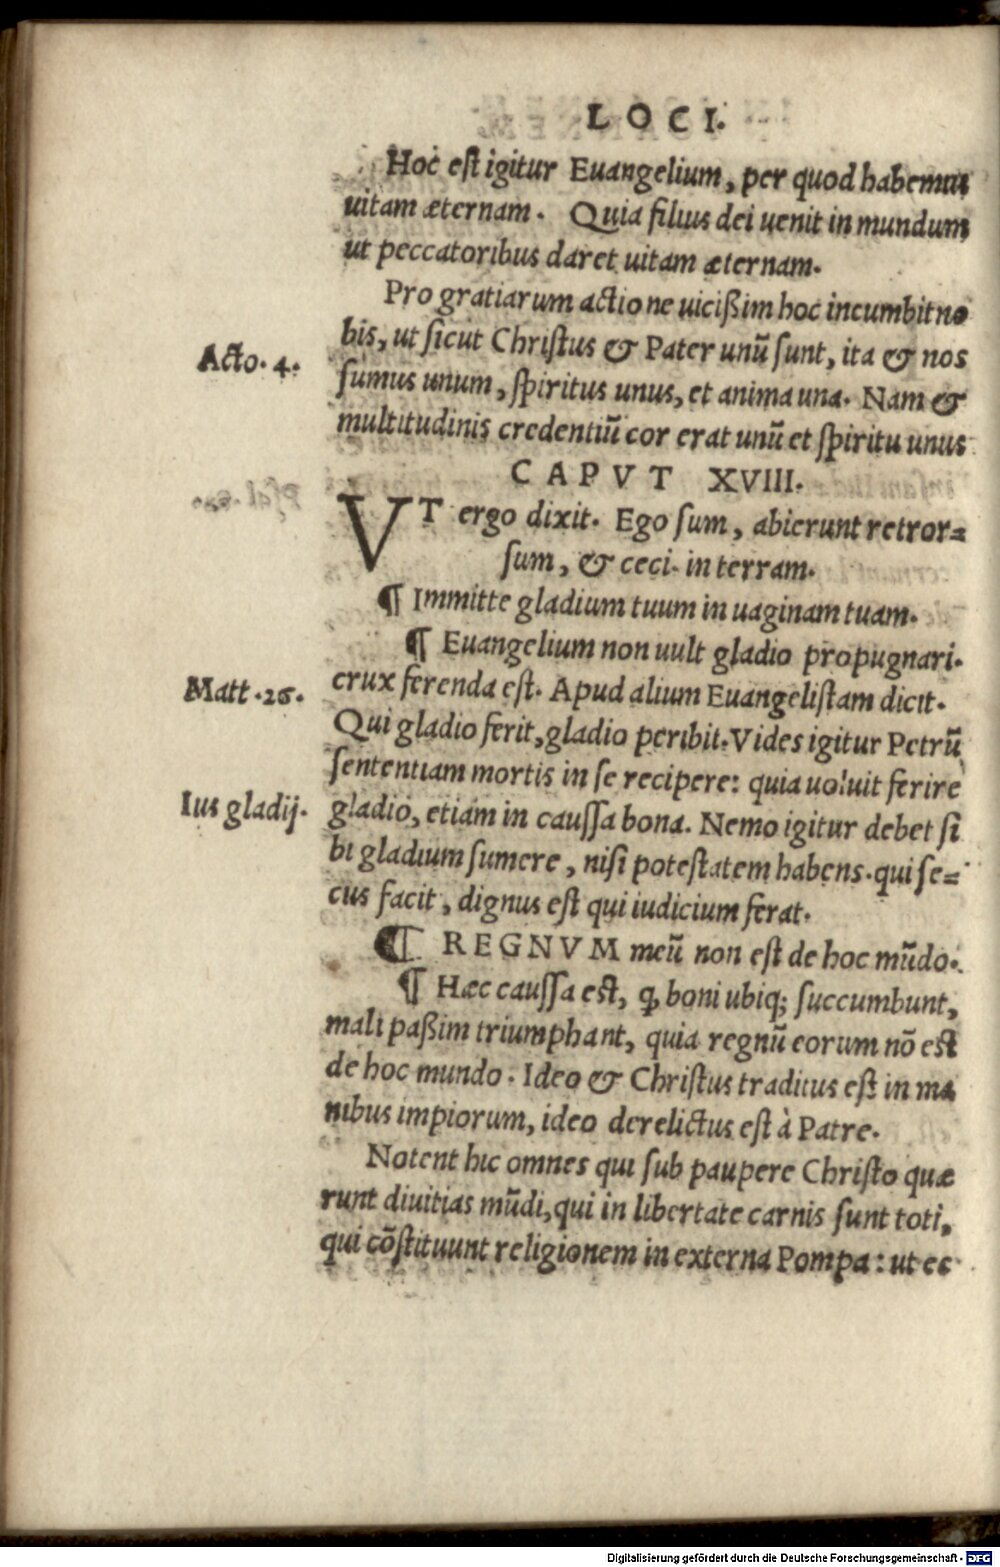 LOCI.
Hoc eſt igitur Euangelium, per quod habemus
uitam æternam. Quia filius dei uenit in mundum
ut peccatoribus daret uitam æternam.
Pro gratiarum actione uicißim hoc incumbit no
bis, ut ſicut Chriſtus & Pater unũ ſunt, ita & nos
Acto. 4.
ſumus unum, ſpiritus unus, et anima una. Nam &
multitudinis credentiũ cor erat unũ et ſpiritu unus
CAPVT XVIII.
VT ergo dixit. Ego ſum, abierunt retror=
ſum, & ceci. in terram.
¶ Immitte gladium tuum in uaginam tuam.
¶ Euangelium non uult gladio propugnari.
Matt. 26.
crux ferenda eſt. Apud alium Euangeliſtam dicit.
Qui gladio ferit, gladio peribit. Vides igitur Petrũ
ſententiam mortis in ſe recipere: quia uoluit ferire
Ius gladij.
gladio, etiam in cauſſa bona. Nemo igitur debet ſi
bi gladium ſumere, niſi poteſtatem habens. qui ſe=
cus facit, dignus eſt qui iudicium ferat.
¶ REGNVM meũ non eſt de hoc mũdo.
¶ Hæc cauſſa eſt, ꝙ boni ubiq; ſuccumbunt,
mali paßim triumphant, quia regnũ eorum nõ eſt
de hoc mundo. Ideo & Chriſtus traditus eſt in ma
nibus impiorum, ideo derelictus eſt à Patre.
Notent hic omnes qui ſub paupere Chriſto quæ
runt diuitias mũdi, qui in libertate carnis ſunt toti,
qui cõſtituunt religionem in externa Pompa: ut ec
Digitalisierung gefördert durch die Deutsche Forschungsgemeinschaft - DFG